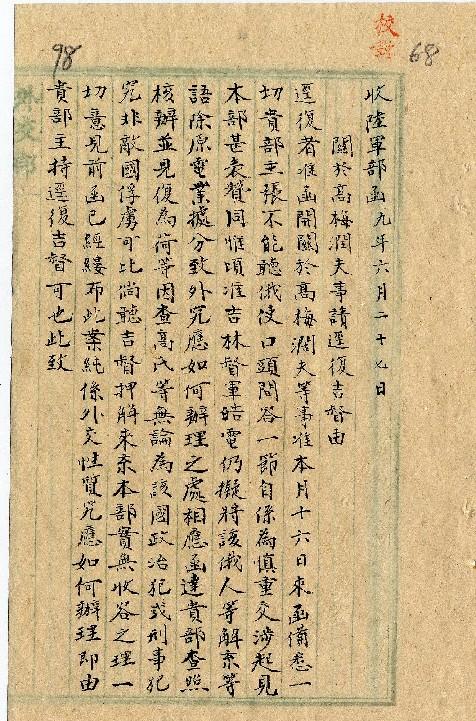 校對
68
98
收陸軍部函九年六月二十七日
關於高梅潤夫事請逕復吉督由
逕復者准函開關於高梅潤夫等事准本月十六日來函備悉一
切貴部主張不能聽俄使口頭問答一節自係為慎重交涉起見
本部甚表贊同惟頃准吉林督軍皓電仍擬將該俄人等解京等
語除原電業據分致外究應如何辦理之處相應函達貴部查照
核辦並見復為荷等因查高氏等無論為該國政治犯或刑事犯
究非敵國俘虜可比倘聽吉督押解來京本部實無收容之理一
切意見前函已經縷布此業純係外交性質究應如何辦理即由
貴部主持逕復吉督可也此致
外交部